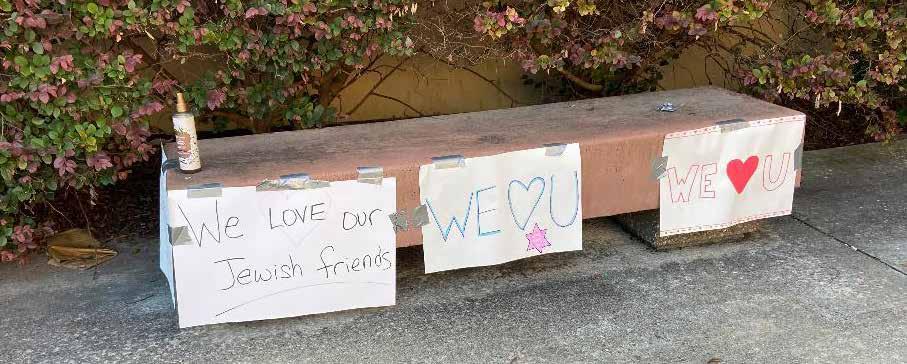 We LOVE our
Jewish friends
WE ♡ U
WE ♥ U